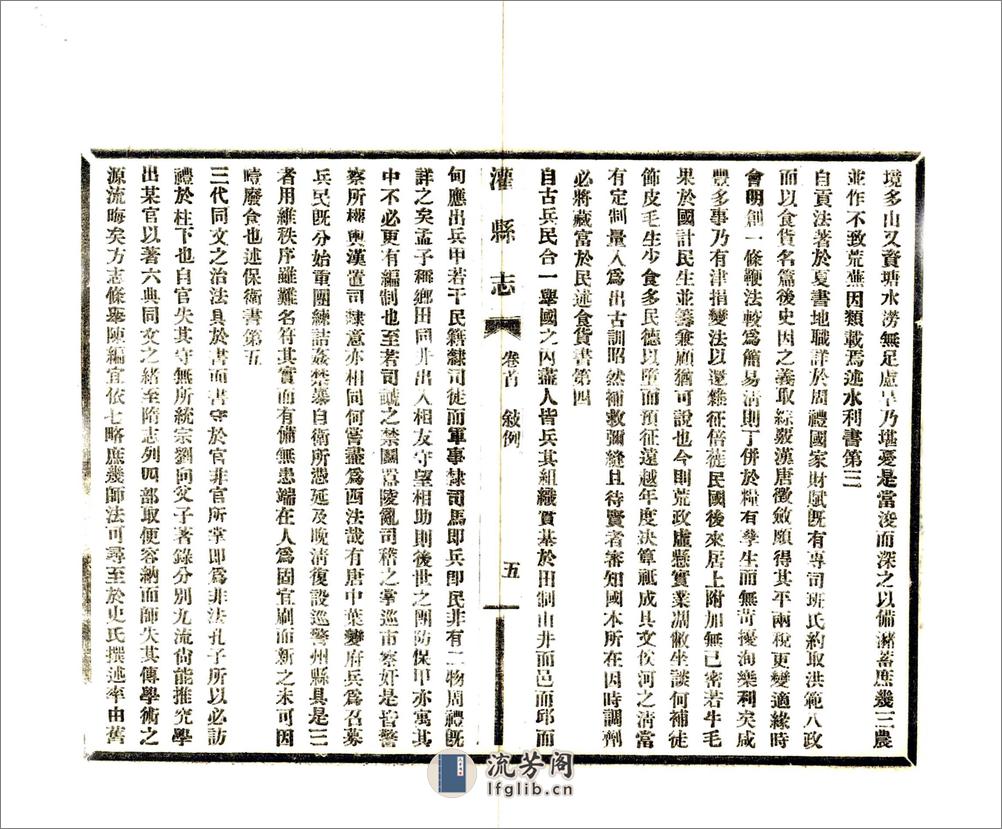 境多山又資塘水澇無足慮旱乃堪憂是當浚而深之以備瀦蓄庶幾三農
並作不致荒蕪因類載焉述水利書第三
自貢法著於夏書地職詳於周禮國家財賦旣有專司班氏約取洪範八政
而以食貨名篇後史因之義取綜覈漢唐徵斂頗得其平兩稅更變適緣時
會明創一條鞭法較爲簡易淸則丁併於糧有孳生而無苛擾海樂利矣咸
豐多事乃有津捐變法以還雜征倍蓰民國後來居上附加無已密若牛毛
果於國計民生並籌兼顧猶可說也今則荒政虛懸實業凋敝坐談何補徒
飾皮毛生少食多民德以隳而預征遠越年度決算祗成具文俟河之淸當
有定制量入爲出古訓昭然補救彌縫且待賢者審知國本所在因時調劑
必將藏富於民述食貨書第四
自古兵民合一舉國之內盡人皆兵其組織實基於田制由井而邑而邱而
灌縣志 卷首 敍例 五
甸應出兵甲若干民籍隸司徒而軍事隸司馬即兵即民非有二物周禮旣
詳之矣孟子稱鄉田同井出入相友守望相助則後世之團防保甲亦寓其
中不必更有編制也至若司虣之禁鬬囂陵亂司稽之掌巡市察奸是皆警
察所權輿漢置司隸意亦相同何嘗盡爲西法哉有唐中葉變府兵爲召募
兵民旣分始重團練詰姦禁暴自衛所憑延及晚淸復設巡警州縣具是三
者用維秩序雖難名符其實而有備無患端在人爲固宜刷而新之未可因
噎廢食也述保衛書第五
三代同文之治法具於書而書守於官非官所掌即爲非法孔子所以必訪
禮於柱下也自官失其守無所統宗劉向父子著錄分別九流尙能推究學
出某官以著六典同文之緒至隋志列四部取便容納而師失其傳學術之
源流晦矣方志條舉陳編宜依七略庶幾師法可尋至於史氏撰述率由舊
流芳阁
lfglib.cn